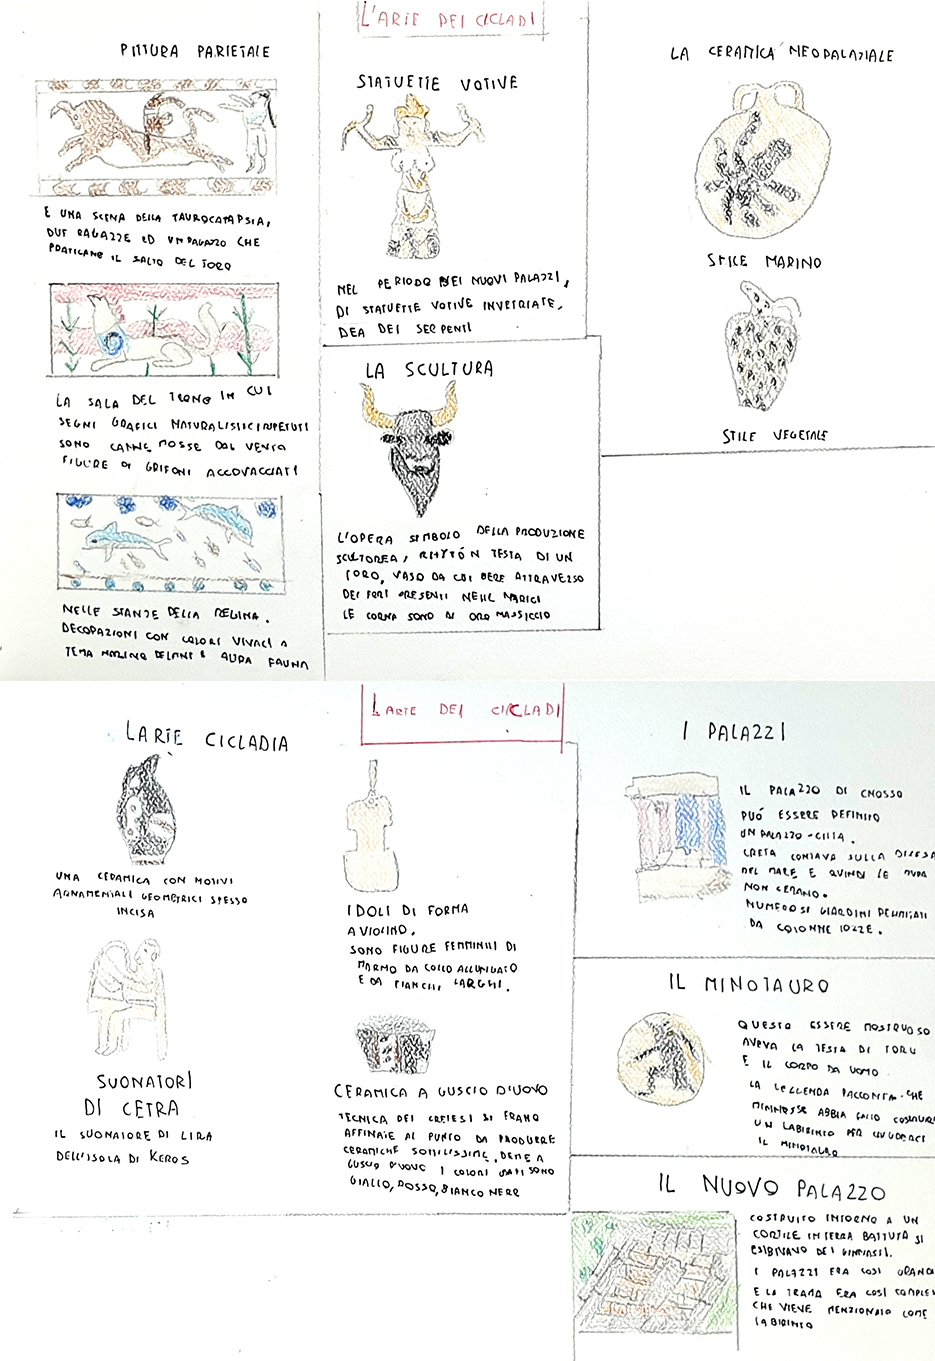 L'ARTE DEI CICLADI
PITTURA PARIETALE
È UNA SCENA DELLA TAUROCATAPSIA,
DUE RAGAZZE ED UN RAGAZZO CHE
PRATICANO IL SALTO DEL TORO
LA SALA DEL TRONO IN CUI
SEGNI GRAFICI NATURALISTICI RIPETUTI
SONO CANNE MOSSE DAL VENTO
FIGURE DI GRIFONI ACCOVACCIATI
NELLE STANZE DELLA REGINA.
DECORAZIONI CON COLORI VIVACI A
TEMA MARINO DELFINI E FAUNA
STATUETTE VOTIVE
NEL PERIODO DEI NUOVI PALAZZI,
DI STATUETTE VOTIVE INVETRIATE,
DEA DEI SERPENTI
LA SCULTURA
L'OPERA SIMBOLO DELLA PRODUZIONE
SCULTOREA, RHYTÓN TESTA DI UN
TORO, VASO DA CUI BERE ATTRAVERSO
DEI FORI PRESENTI NELLE NARICI
LE CORNA SONO DI ORO MASSICCIO
LA CERAMICA NEOPALAZIALE
STILE MARINO
STILE VEGETALE
L'ARTE DEI CICLADI
L'ARTE CICLADIA
UNA CERAMICA CON MOTIVI
ARNAMENTALI GEOMETRICI SPESSO
INCISA
SUONATORI
DI CETRA
IL SUONATORE DI LIRA
DELL'ISOLA DI KEROS
IDOLI DI FORMA
A VIOLINO.
SONO FIGURE FEMMINILI DI
MARMO DA COLLO ALLUNGATO
E DA FIANCHI LARGHI.
CERAMICA A GUSCIO D'UOVO
TECNICA DEI CRETESI SI ERANO
AFFINATE AL PUNTO DA PRODURRE
CERAMICHE SOTTILISSIME, DETTE A
GUSCIO D'UOVO I COLORI USATI SONO
GIALLO, ROSSO, BIANCO NERO
I PALAZZI
IL PALAZZO DI CNOSSO
PUÓ ESSERE DEFINITO
UN PALAZZO-CITTÀ.
CRETA CONTAVA SULLA DIFESA
DEL MARE E QUINDI LE MURA
NON C'ERANO.
NUMEROSI GIARDINI DELIMITATI
DA COLONNE ROZZE.
IL MINOTAURO
QUESTO ESSERE MOSTRUOSO
AVEVA LA TESTA DI TORO
E IL CORPO DA UOMO
LA LEGGENDA RACCONTA CHE
MINOSSE ABBIA FATTO COSTRUIRE
UN LABIRINTO PER
IL MINOTAURO
IL NUOVO PALAZZO
COSTRUITO INTORNO A UN
CORTILE IN TERRA BATTUTA SI
ESIBIVANO DEI GINNASTI.
I PALAZZI ERA COSÌ GRANDE
E LA TRAMA ERA COSÌ
CHE VIENE MENZIONATO COME
LABIRINTO